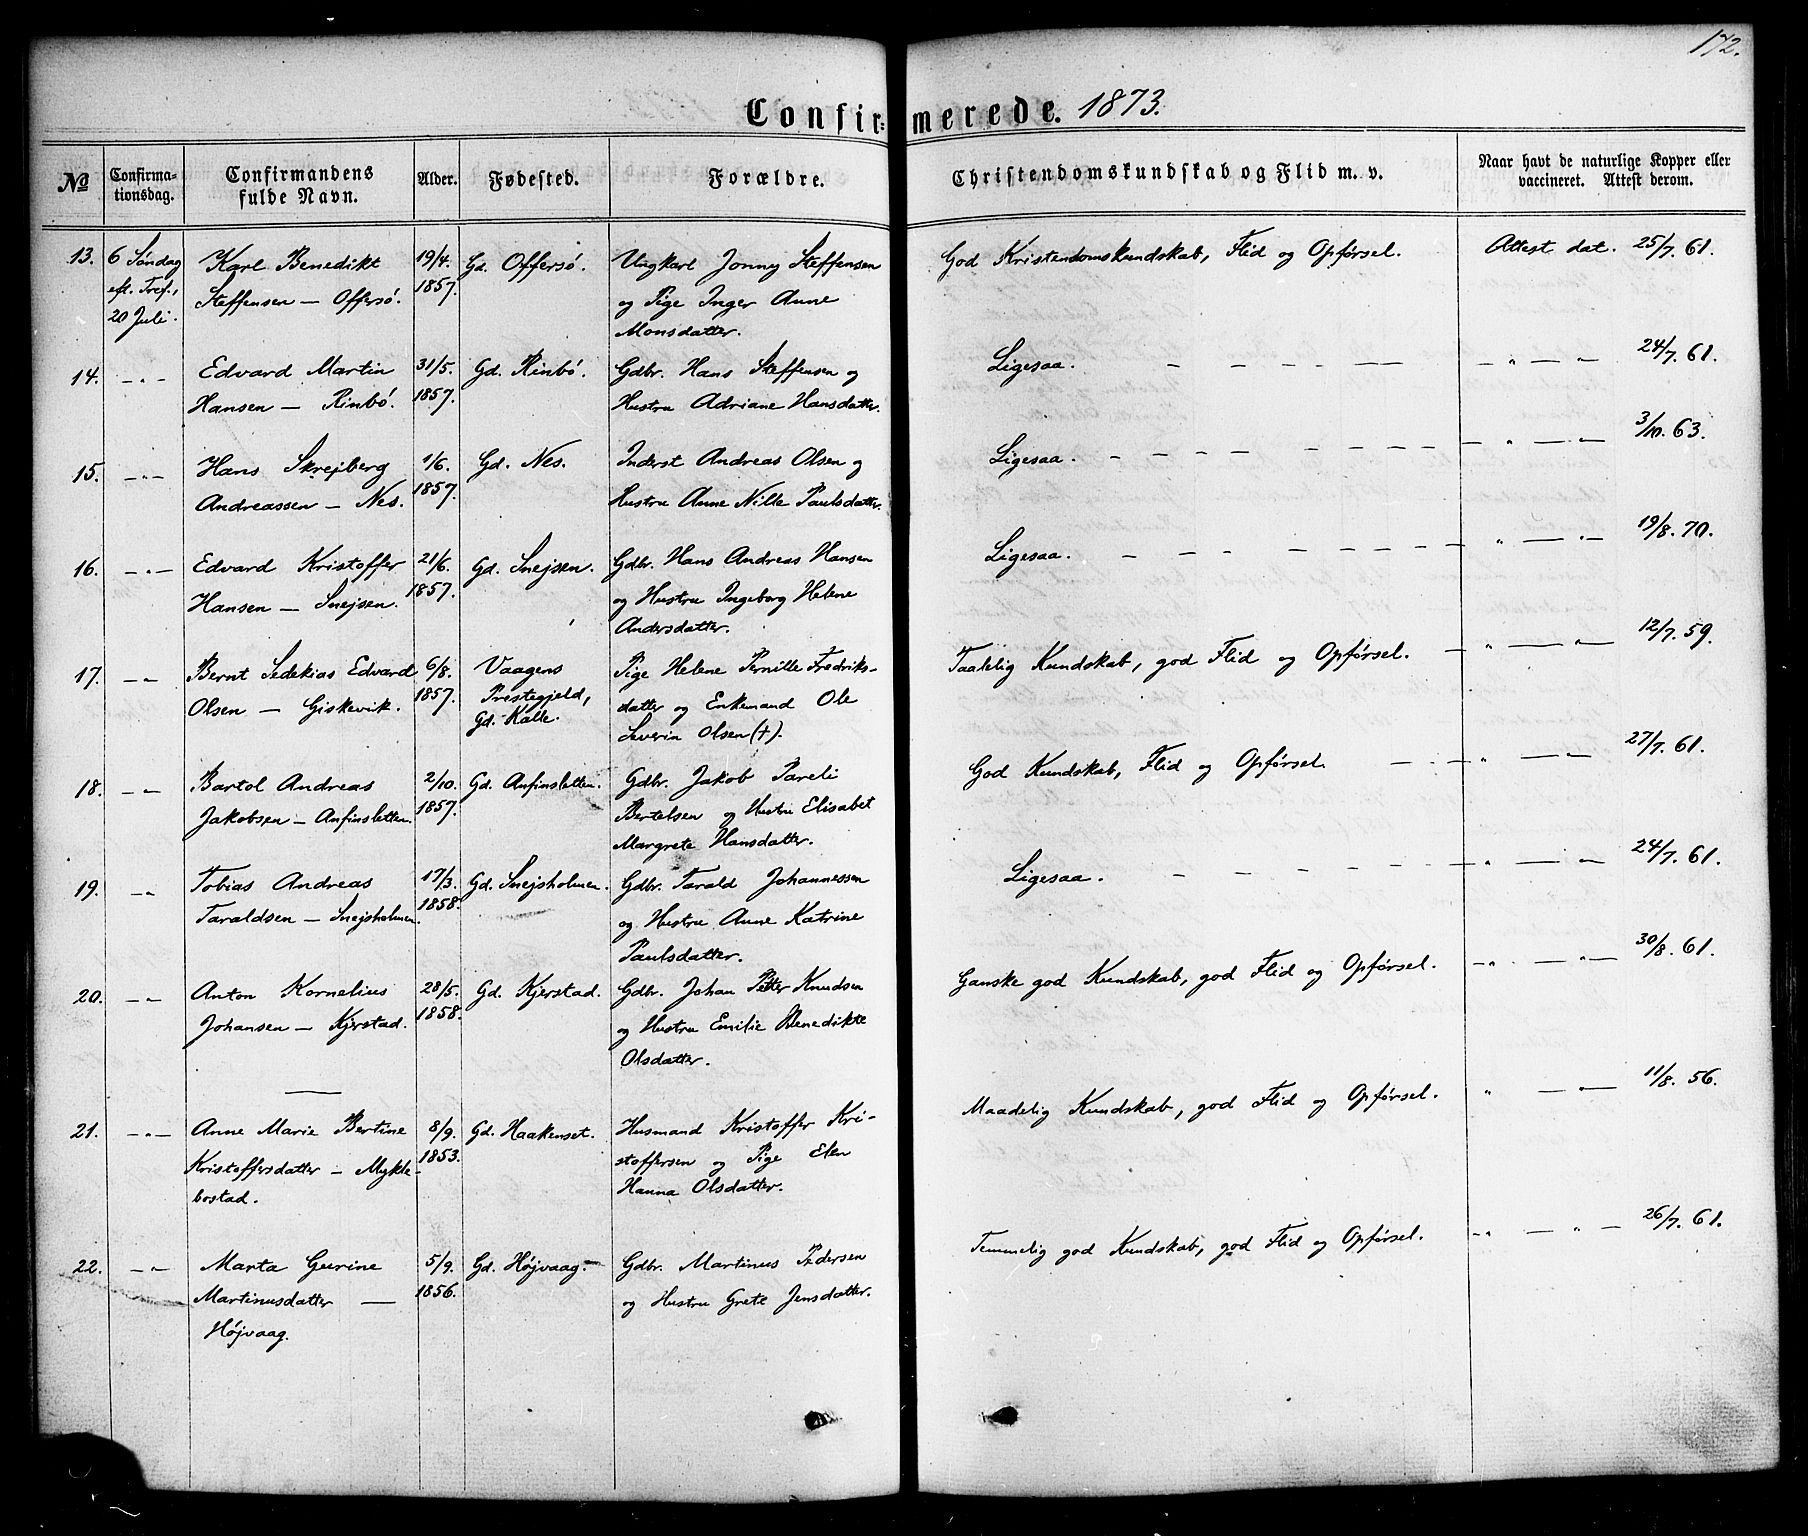 172.
Confirmerede. 1873.
№ Confirmationsdag. Confirmandens fulde Navn. Alder. Fødested. Forældre. Christendomskundskab og Flid m. v. Naar havt de naturlige Kopper eller vaccineret. Attest derom.
13. 6 Søndag Karl Benedikt 19/4. Gd. Offersø. Ungkarl Jonny Steffensen God Kristendomskundskab, Flid og Opførsel. Attest dat. 25/7. 61.
eft. Tref., Steffensen — Offersø. 1857. og Pige Inger Anne
20 Juli. Monsdatter.
14. — " — Edvard Martin 31/5. Gd. Rinbø. Gdbr. Hans Steffensen og Ligesaa. — — — — — " — " — 24/7. 61.
Hansen — Rinbø. 1857. Hustru Adriane Hansdatter.
15. — " — Hans Skrejberg 1/6. Gd. Nes. Inderst Andreas Olsen og Ligesaa. — — — — — — " — " — 3/10. 63.
Andreassen — Nes. 1857. Hustru Anne Nille Paulsdatter.
16. — " — Edvard Kristoffer 21/6. Gd. Snejsen. Gdbr. Hans Andreas Hansen Ligesaa. — — — — — — " — " — 19/8. 70.
Hansen — Snejsen. 1857. og Hustru Ingeborg Helene
Andersdatter.
17. — " Bernt Sedekias Edvard 6/8. Vaagens Pige Helene Pernille Fredriks- Taalelig Kundskab, god Flid og Opførsel. — " — " — 12/7. 59.
Olsen — Giskevik. 1857. Prestegjeld, datter og Enkemand Ole
Gd. Kalle. Severin Olsen (+).
18. — " Bartol Andreas 2/10. Gd. Anfinsletten. Gdbr. Jakob Pareli God Kundskab, Flid og Opførsel. — " — " — 27/7. 61.
Jakobsen — Anfinsletten. 1857. Bertelsen og Hustru Elisabet
Margrete Hansdatter.
19. — " Tobias Andreas 17/3. Gd. Snejsholmen. Gdbr. Tarald Johannessen Ligesaa. — — — — — " — " — 24/7. 61.
Taraldsen — Snejsholmen. 1858. og Hustru Anne Katrine
Paulsdatter.
20. — " Anton Kornelius 28/5. Gd. Kjerstad. Gdbr. Johan Petter Knudsen Ganske god Kundskab, god Flid og Opførsel. — " — " — 30/8. 61.
Johansen — Kjerstad. 1858. og Hustru Emilie Benedikte
Olsdatter.
21. — " — Anne Marie Bertine 8/9. Gd. Haakenset. Husmand Kristoffer Kri- Maadelig Kundskab, god Flid og Opførsel. " — " — 11/8. 56.
Kristoffersdatter — Mykle- 1853. stoffersen og Pige Elen
bostad. Hanna Olsdatter.
22. — " Marta Gurine 5/9. Gd. Højvaag. Gdbr. Martinus Pedersen Temmelig god Kundskab, god Flid og Opførsel. — " — " — 26/7. 61.
Martinusdatter — 1856. og Hustru Grete Jensdatter.
Højvaag.